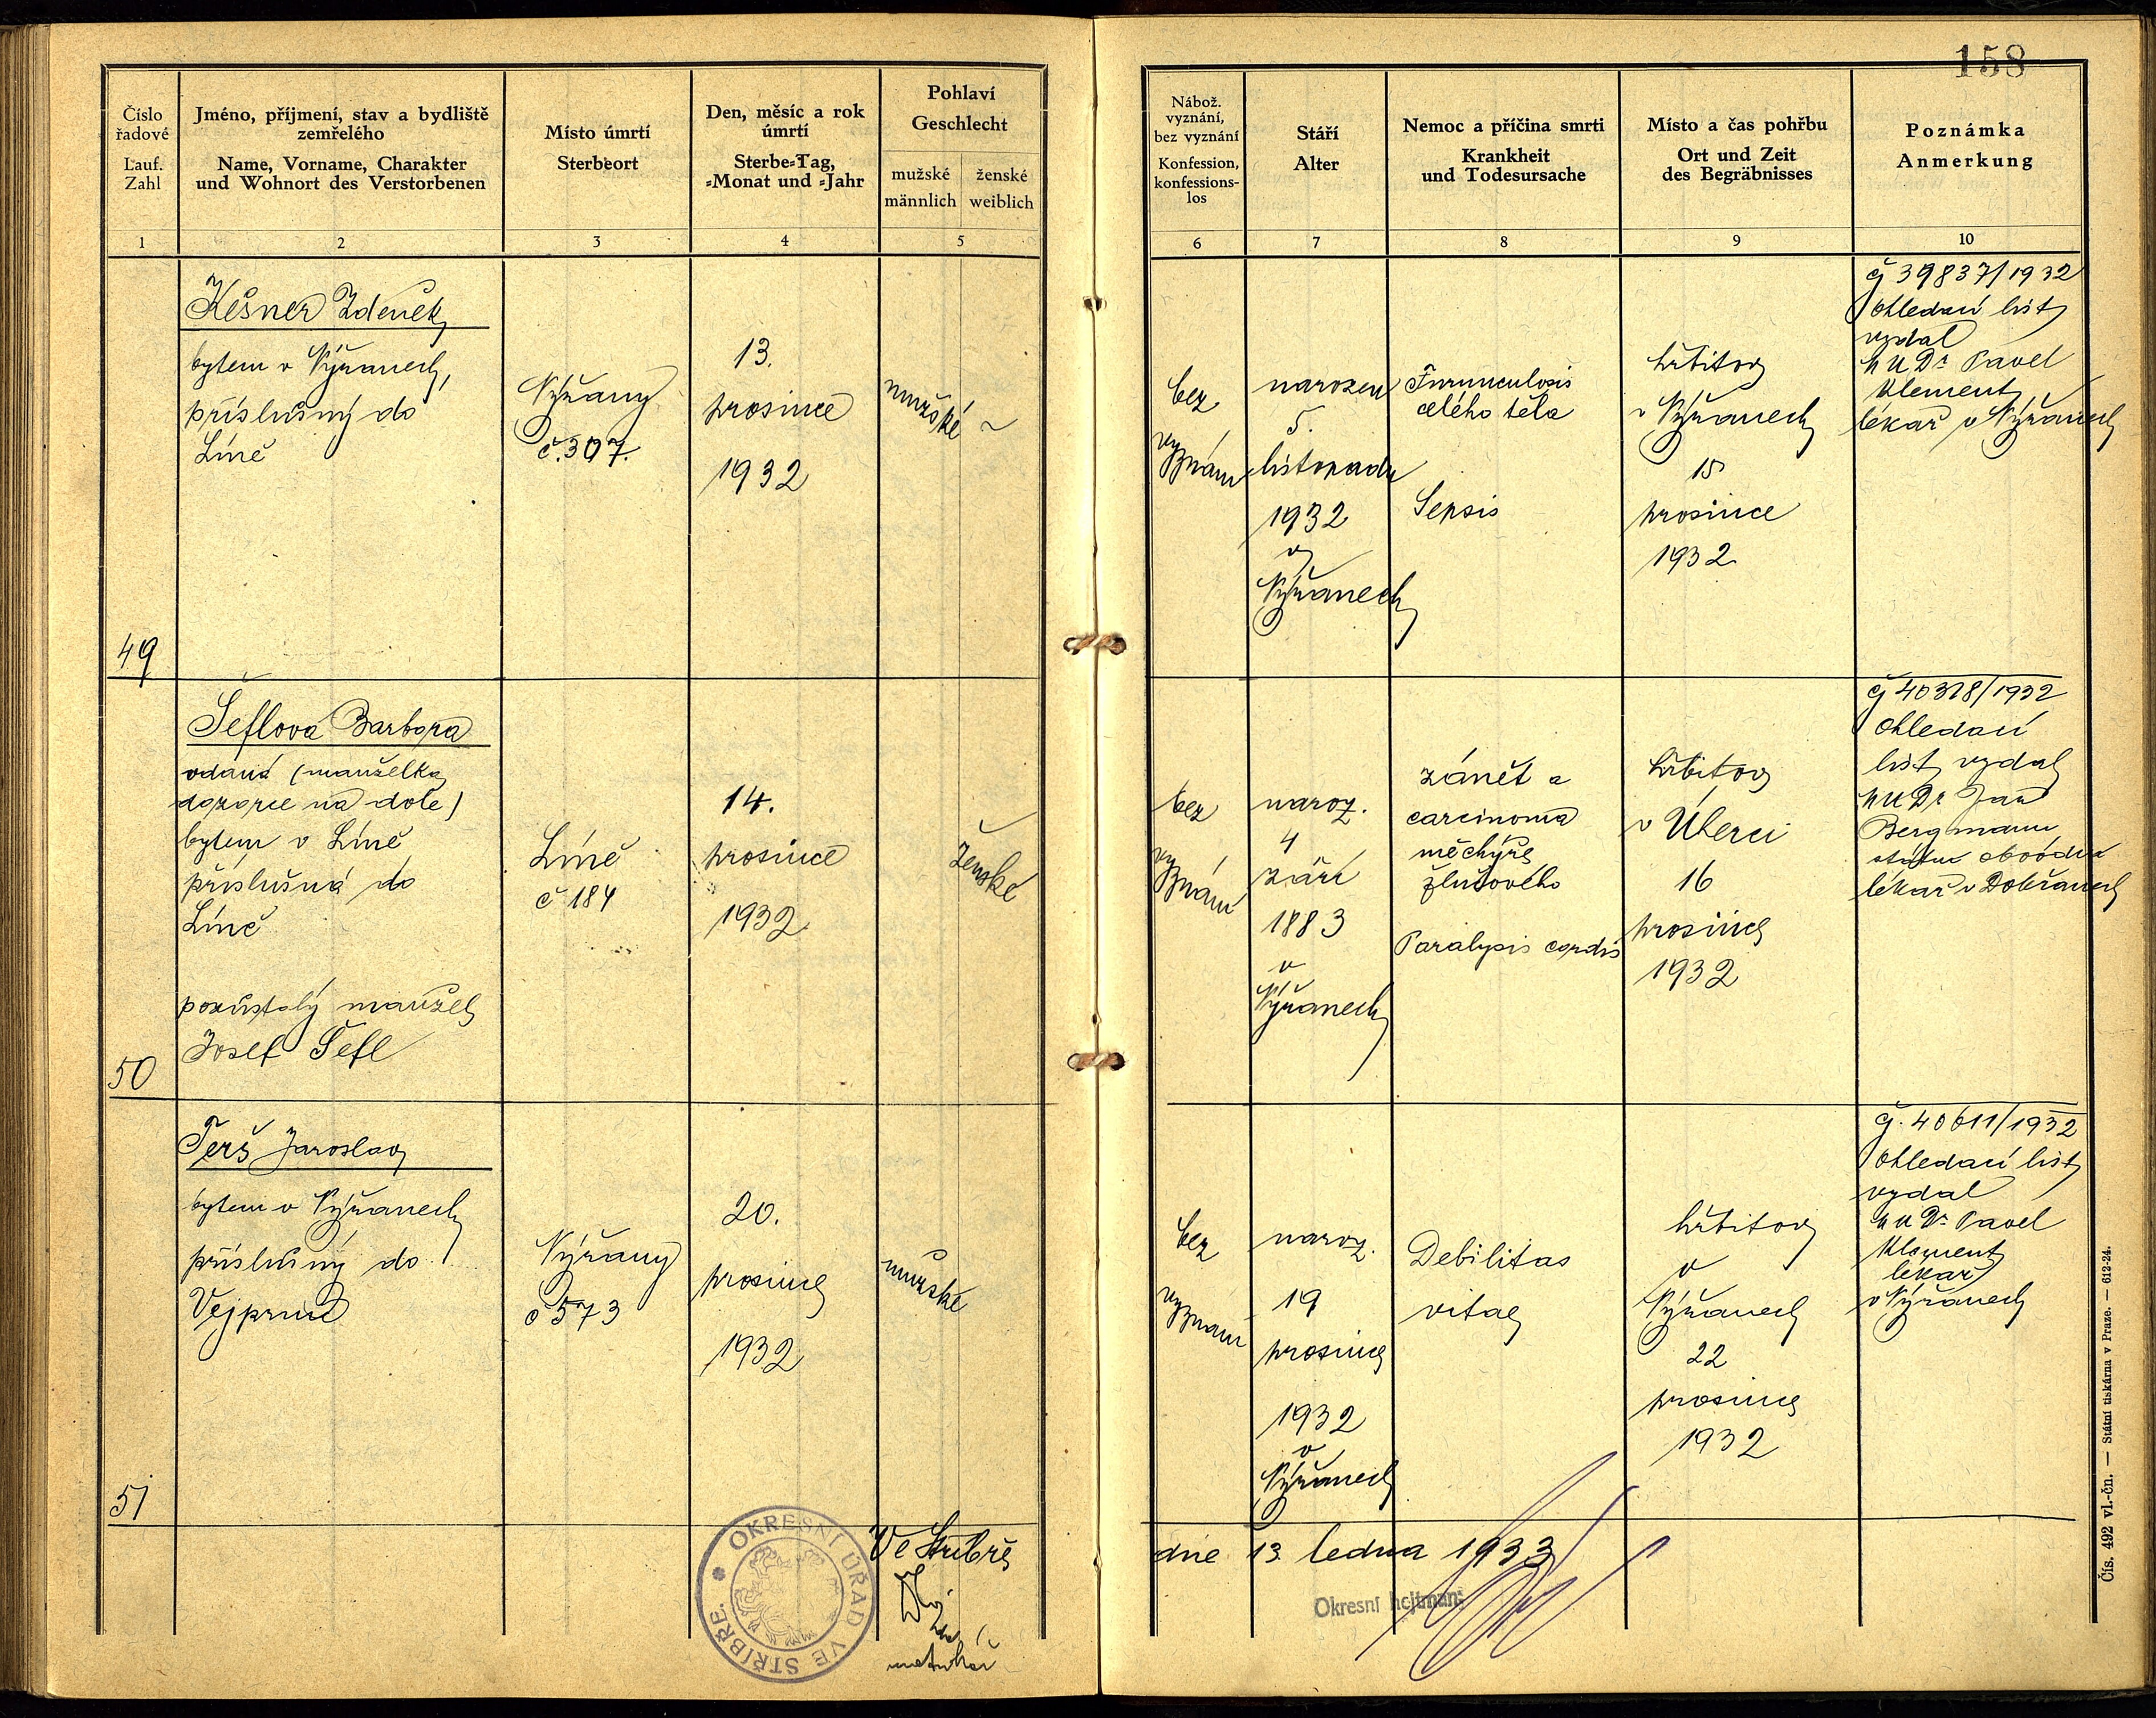 158
Číslo
řadové
Lauf.
Zahl
Jméno, příjmení, stav a bydliště
zemřelého
Name, Vorname, Charakter
und Wohnort des Verstorbenen
Místo úmrtí
Sterbeort
Den, měsíc a rok
úmrtí
Sterbe-Tag,
-Monat und -Jahr
Pohlaví
Geschlecht
mužské
männlich
ženské
weiblich
Nábož.
vyznání,
bez vyznání
Konfession,
konfessions-
los
Stáří
Alter
Nemoc a příčina smrti
Krankheit
und Todesursache
Místo a čas pohřbu
Ort und Zeit
des Begräbnisses
Poznámka
Anmerkung
1 2 3 4 5 6 7 8 9 10
49
Kešner Zdeněk
bytem v Nýřanech,
příslušný do
Líně
Nýřany
č. 307.
13.
prosince
1932
mužské
bez
vyznání
narozen
5.
listopadu
1932
v
Nýřanech
Furunculosis
celého těla
Sepsis
hřbitov
v Nýřanech
15
prosince
1932
čj 39837/1932
Ohledací list
vydal
MUDr Pavel
Klement
lékař v Nýřanech
50
Šeflová Barbora
vdaná (manželka
dozorce na dole)
bytem v Líně
příslušná do
Líně
pozůstalý manžel
Josef Šefl
Líně
č 184
14.
prosince
1932
ženské
bez
vyznání
naroz.
4
září
1883
v
Nýřanech
zánět a
carcinoma
měchýře
žlučového
Paralysis cordis
hřbitov
v Úherci
16
prosince
1932
čj 40318/1932
Ohledací
list vydal
MUDr Jan
Bergmann
státní obvodní
lékař v Dobřanech
51
Terš Jaroslav
bytem v Nýřanech
příslušný do
Vejprnic
Nýřany
č 573
20.
prosince
1932
mužské
bez
vyznání
naroz.
19
prosince
1932
v
Nýřanech
Debilitas
vitae
hřbitov
v
Nýřanech
22
prosince
1932
čj. 40611/1932
Ohledací list
vydal
MUDr Pavel
Klement
lékař
v Nýřanech
Ve Stříbře
dne 13. ledna 1933
matrikář
OKRESNÍ ÚŘAD VE STŘÍBŘE.
Okresní hejtman:
Čís. 492 vl.-čn. — Státní tiskárna v Praze. — 612-24.